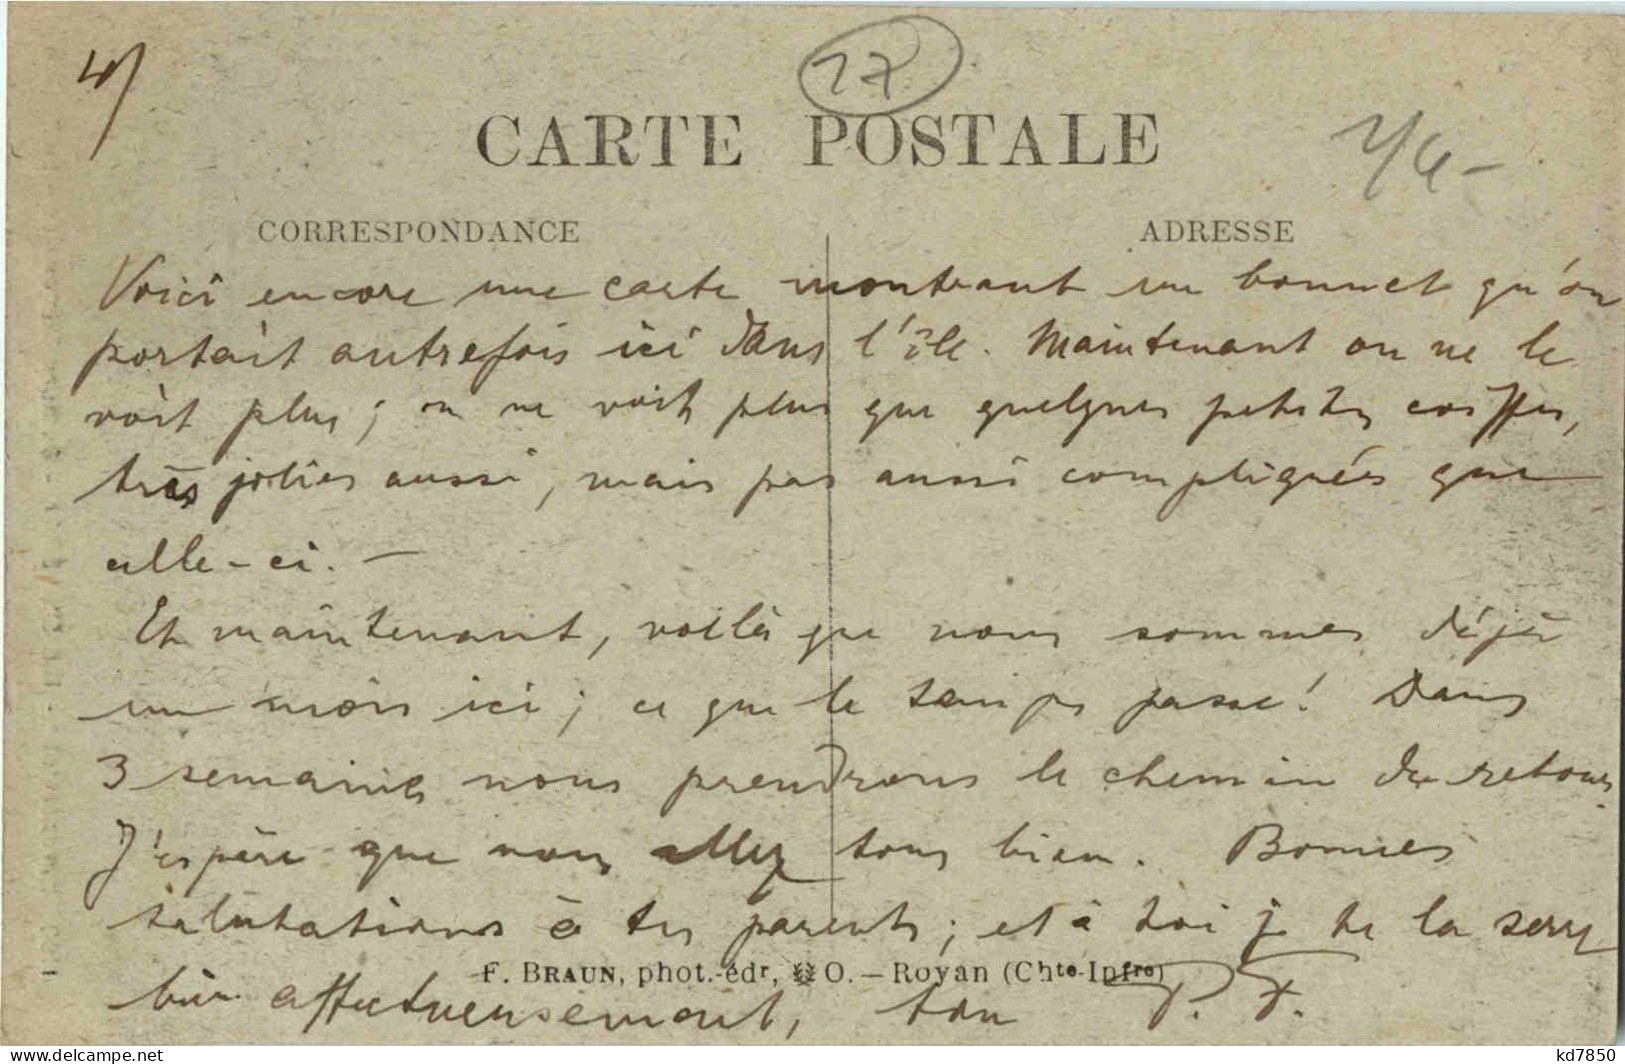 4)
17
CARTE POSTALE
CORRESPONDANCE
ADRESSE
Voici encore une carte montrant un bonnet qu'on
portait autrefois ici dans l'île. Maintenant on ne le
voit plus; on ne voit plus que quelques petites coiffes,
très jolies aussi, mais pas aussi compliquées que
celle-ci. —
Et maintenant, voilà que nous sommes déjà
un mois ici; ce que le temps passe! Dans
3 semaines nous prendrons le chemin du retour.
J'espère que vous allez tous bien. Bonnes
salutations à tes parents; et à toi je te la serre
bien affectueusement, ton
F. BRAUN, phot.-édr, O. — Royan (Chte-Infre)
kd7850